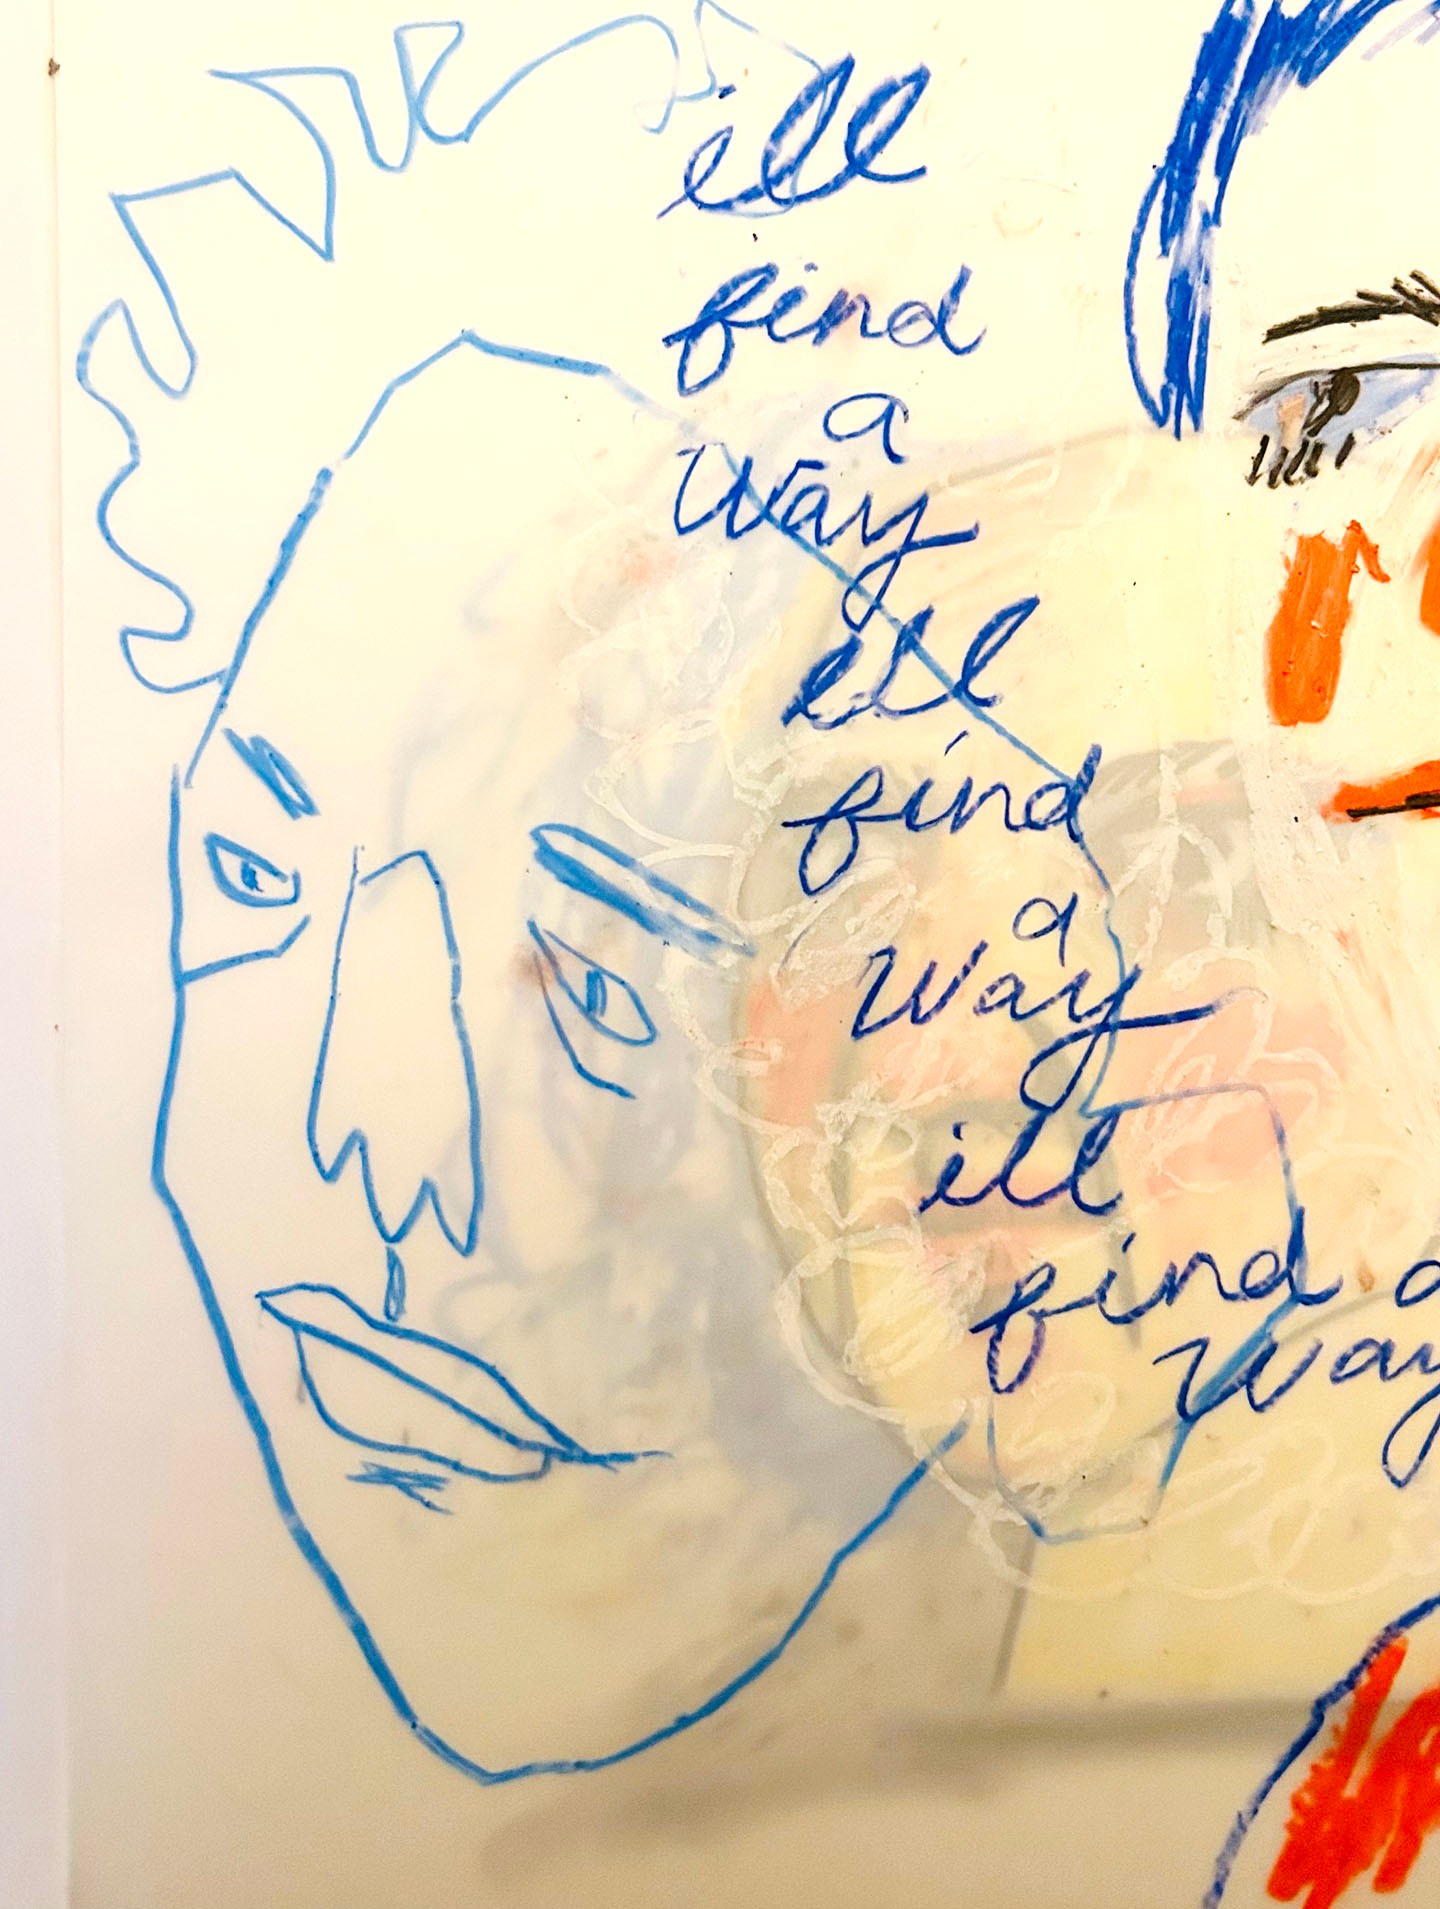 ill
find
a
way
ill
find
a
way
ill
find a
way